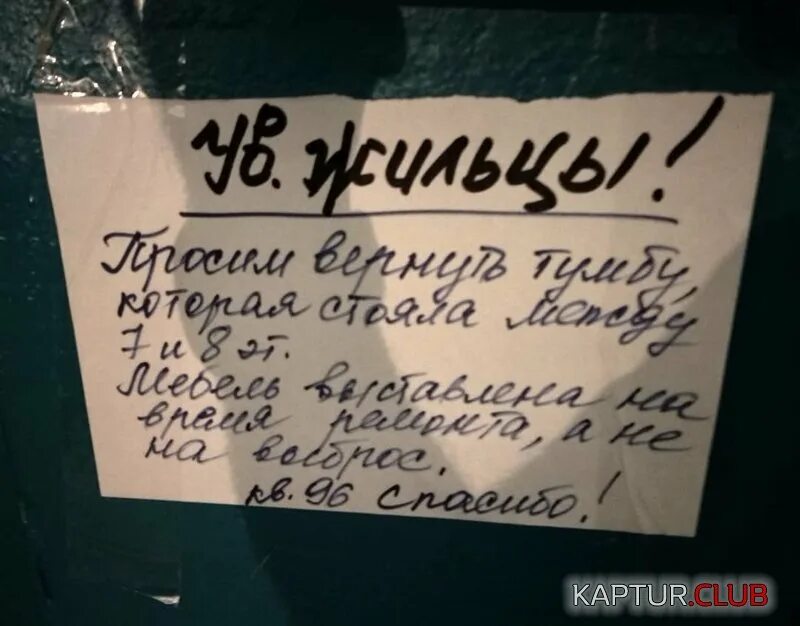 Ув. жильцы!
Просим вернуть тумбу,
которая стояла между
7 и 8 эт.
Мебель выставлена на
время ремонта, а не
на выброс.
кв. 96 Спасибо!
KAPTUR.CLUB